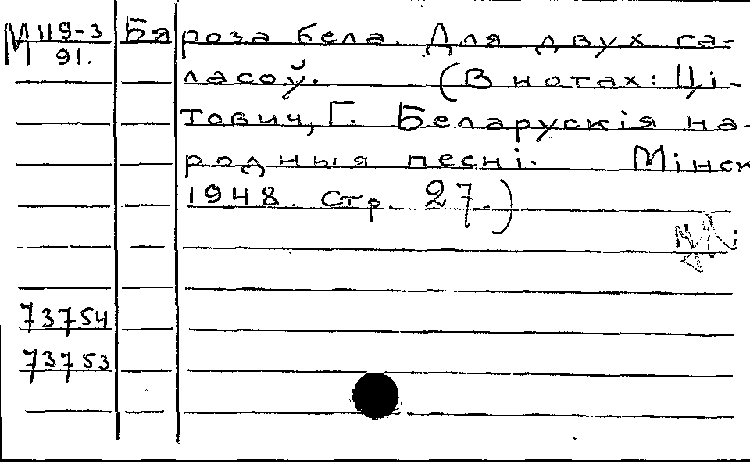 М 119-3 Бяроза бела. Для двух га-
91. ласоў. (В нотах: Ці-
тович, Г. Беларускія на-
родныя песні. Мінск
1948. стр. 27.)
73754
73753